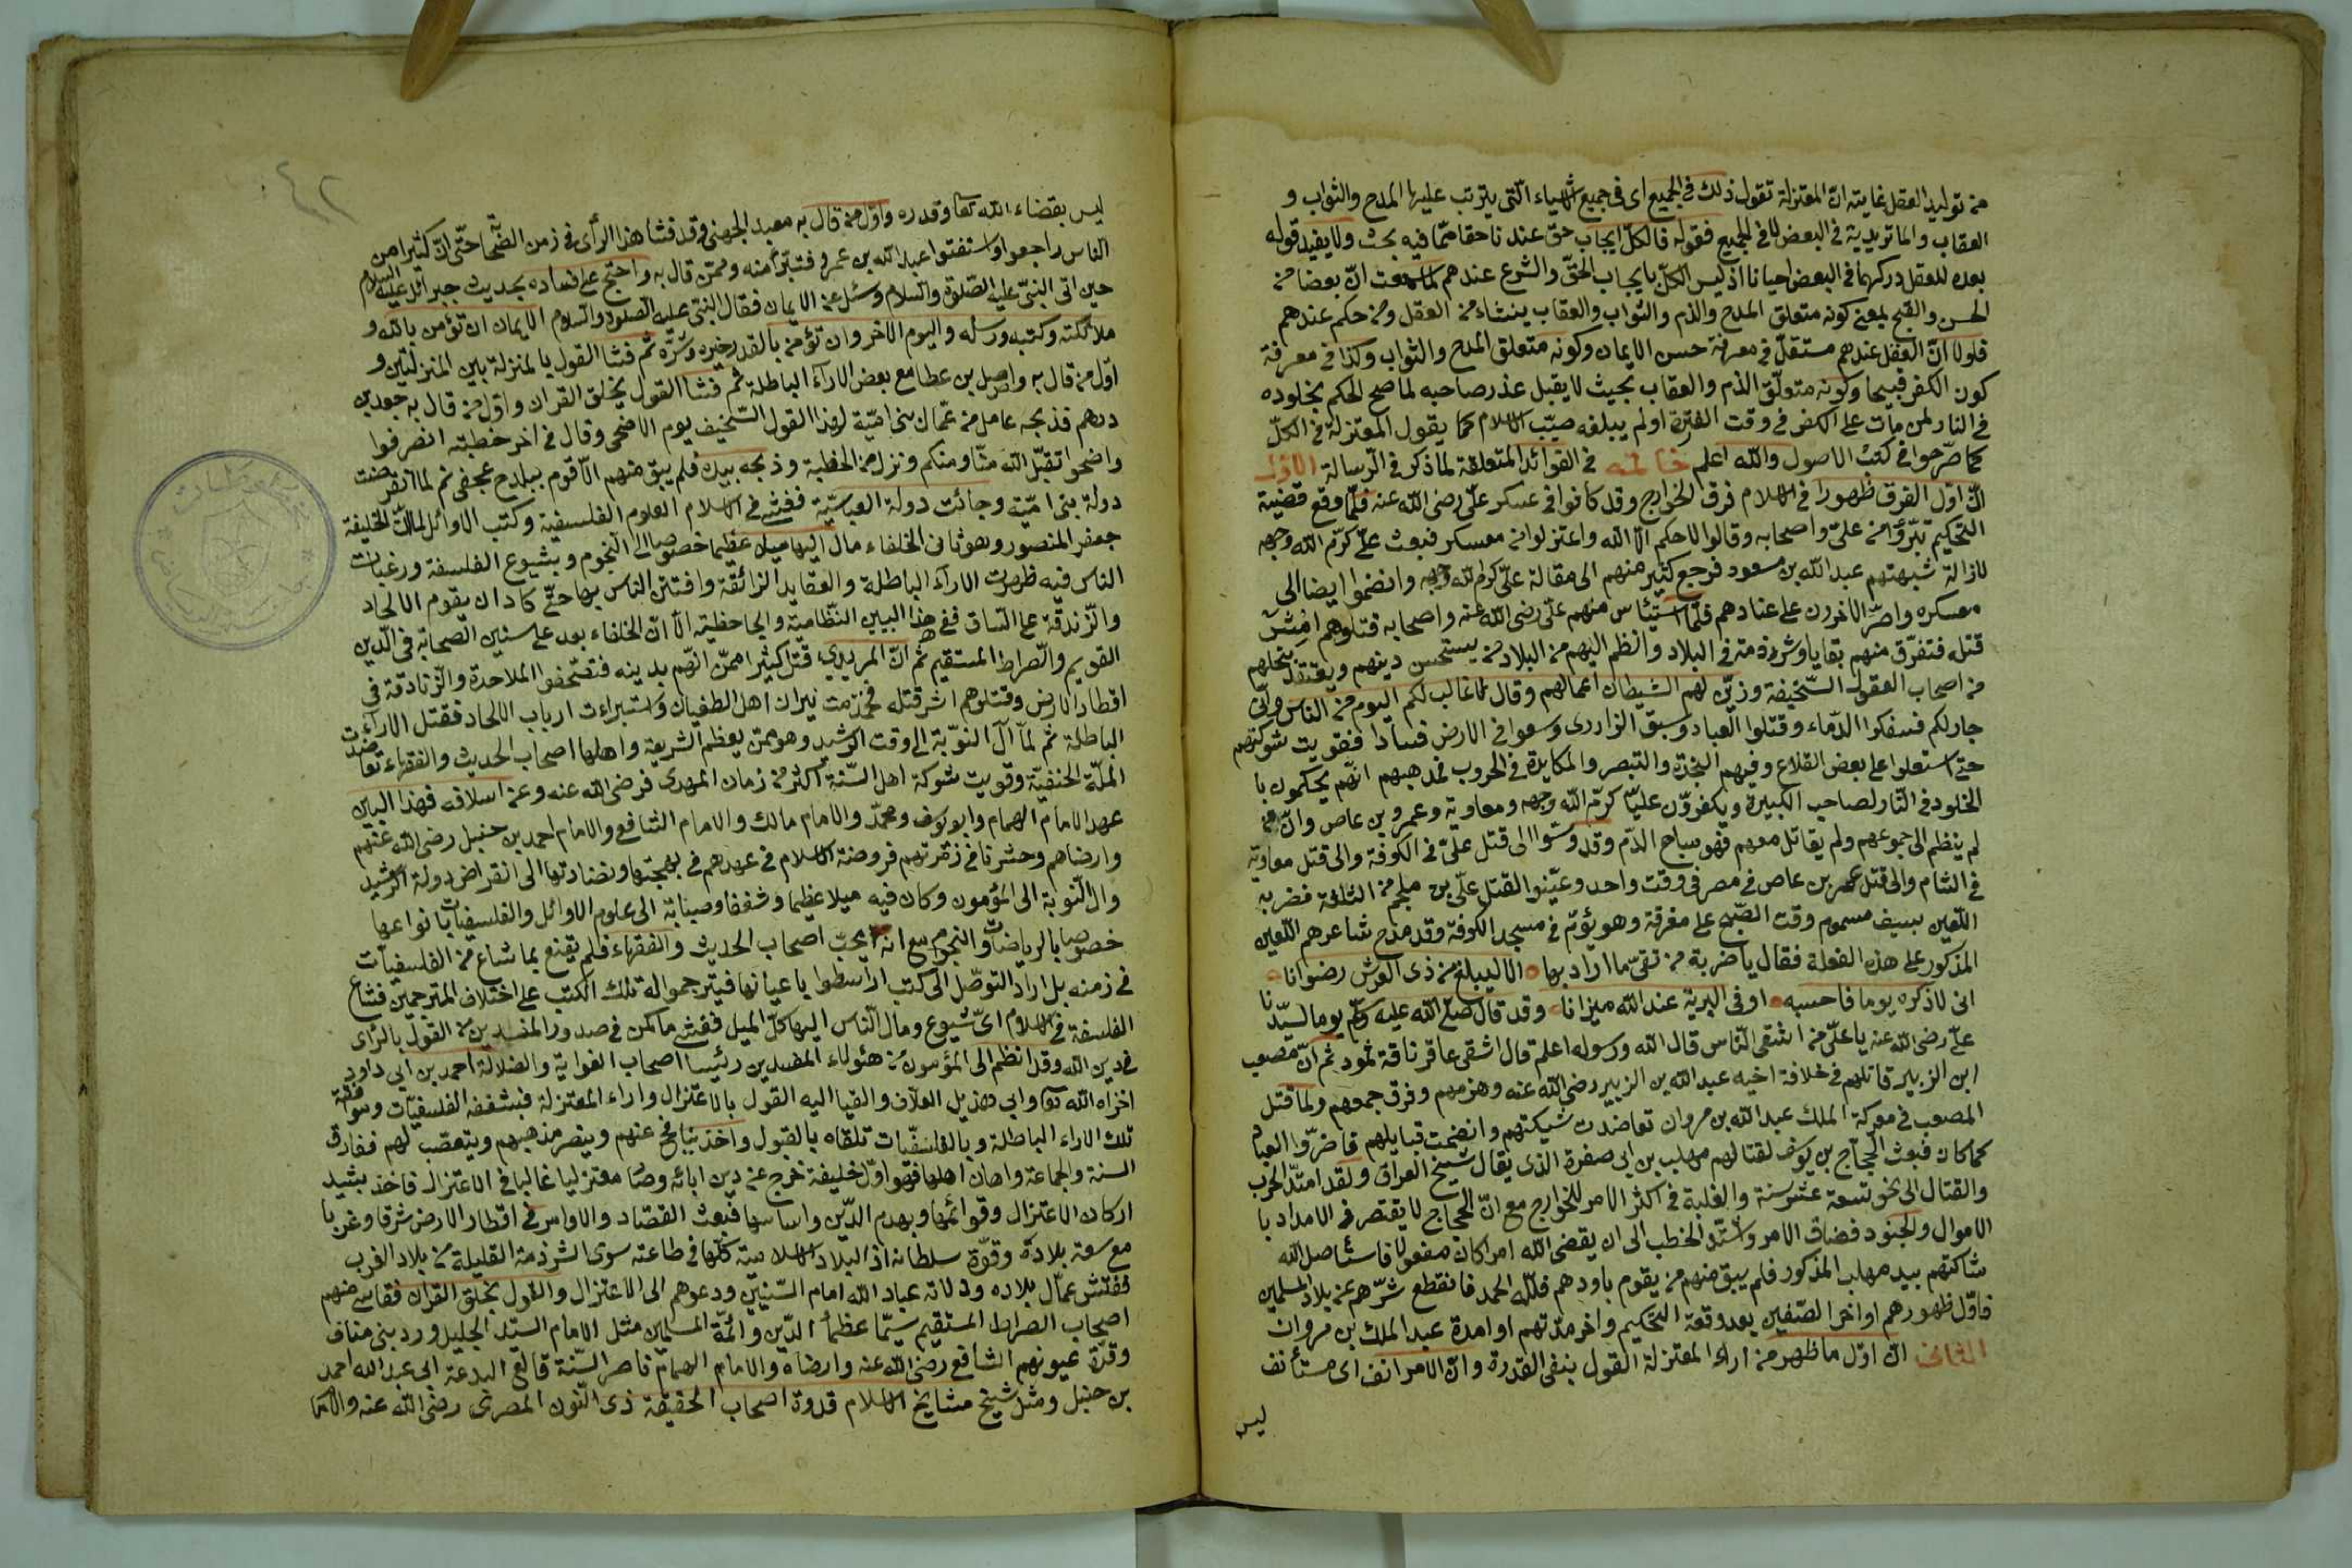 من توليد العقل غايته ان المعتزلة تقول ذلك في الجميع اى في جميع الاشياء التى يترتب عليها المدح والثواب و
العقاب والماتريدية في البعض لا في الجميع فقوله فالكل ايجاب حق عندنا حقا مما فيه بحث ولا يفيد قوله
بعده للعقل دركهما في البعض احيانا اذ ليس الكل بايجاب الحق والشرع عندهم لما سمعت ان بعضا من
الحسن والقبح بمعنى كونه متعلق المدح والذم والثواب والعقاب ينشاء من العقل ومن حكم عندهم
فلولا ان العقل عندهم مستقل في معرفة حسن الايمان وكونه متعلق المدح والثواب وكذا في معرفة
كون الكفر قبيحا وكونه متعلق الذم والعقاب بحيث لا يقبل عذر صاحبه لما صح الحكم بخلوده
في النار لمن مات على الكفر في وقت الفترة او لم يبلغه صيت الاسلام كما يقول المعتزلة في الكل
كما صرحوا في كتب الاصول والله اعلم خاتمه في الفوائد المتعلقة لما ذكر في الرسالة الاولى
ان اول الفرق ظهورا في الاسلام فرق الخوارج وقد كانوا في عسكر على رضى الله عنه فلما وقع قضية
التحكيم تبرؤا من على واصحابه وقالوا لا حكم الا لله واعتزلوا من معسكر فبعث على كرم الله وجهه
لازالة شبهتهم عبد الله بن مسعود فرجع كثير منهم الى مقالة على كرم الله وجهه وانضموا ايضا الى
معسكره واصر الاخرون على عنادهم فلما استيئاس منهم على رضى الله عنه واصحابه قتلوهم اشر
قتله فتفرق منهم بقايا وشرذمة في البلاد وانظم اليهم من البلاد من يستحسن دينهم ويعتقد بنحلهم
من اصحاب العقول السخيفة وزين لهم الشيطان اعمالهم وقال لا غالب لكم اليوم من الناس وانى
جار لكم فسفكوا الدماء وقتلوا العباد وسبق الزاررى وسعوا في الارض فسادا فقويت شوكتهم
حتى استعلوا على بعض القلاع وفيهم النجدة والتبصر والمكايدة في الحروب فمذهبهم انهم يحكمون با
الخلود في النار لصاحب الكبيرة ويكفرون عليا كرم الله وجهه ومعاوية وعمرو بن عاص وان من
لم ينظم الى جموعهم ولم يقاتل معهم فهو مباح الدم وقد وسوا الى قتل على في الكوفة والى قتل معاوية
في الشام والى قتل عمر بن عاص في مصر في وقت واحد وعينوا لقتل على بن ملجم من الثلثة فضربه
اللعين بسيف مسموم وقت الصبح على مفرقة وهو يؤم في مسجد الكوفة وقد مدح شاعرهم اللعين
المذكور على هذه الفعلة فقال يا ضربة من تقى ما اراد بها • الا ليبلغ من ذى العرش رضوانا •
انى لاذكره يوما فاحسبه • اوفى البرية عند الله ميزانا • وقد قال صلى الله عليه وسلم يوما لسيدنا
على رضى الله عنه يا على من اشقى الناس قال الله ورسوله اعلم قال اشقى عاقر ناقة ثمود ثم ان مصعب
ابن الزبير قاتلهم في خلافة اخيه عبد الله بن الزبير رضى الله عنه وهزمهم وفرق جمعهم ولما قتل
المصعب في معركة الملك عبد الله بن مروان تعاضدت شيكتهم وانضمت قبايلهم فاضروا العباد
كما كان فبعث الحجاج بن يوسف لقتالهم مهلب بن ابى صفرة الذى يقال شيخ العراق ولقد امتد الحرب
والقتال الى نحو تسعة عشر سنة والغلبة في اكثر الامر للخوارج مع ان الحجاج لا يقتصر في الامداد با
الاموال والجنود فضاق الامر واشتد الخطب الى ان يقضى الله امرا كان مفعولا فاستأصل الله
شاكتهم بيد مهلب المذكور فلم يبق منهم من يقوم باودهم فلله الحمد فانقطع شرهم عن بلاد المسلمين
فاول ظهورهم اواخر الصفين بعد وقعة التحكيم واخر مدتهم اوامدة عبد الملك بن مروان
الثانى ان اول ما ظهر من اراء المعتزلة القول بنفى القدرة وان الامر انف اى مستأنف
ليس
٤٢
ليس بقضاء الله تعا وقدره واول من قال به معبد الجهنى وقد فشا هذا الرأى في زمن الصحابة حتى ان كثيرا من
الناس راجعوا واستفتوا عبد الله بن عمر فتبرأ منه وممن قال به واحتج على فساده بحديث جبرائل عليه السلام
حين اتى النبى عليه الصلوة والسلام وسئل عن الايمان فقال النبى عليه الصلوة والسلام الايمان ان تؤمن بالله و
ملائكته وكتبه ورسله واليوم الاخر وان تؤمن بالقدر خيره وشره ثم فشا القول بالمنزلة بين المنزلتين و
اول من قال به واصل بن عطا مع بعض الاراء الباطلة ثم فشا القول بخلق القران واول من قال به جعد بن
درهم فذبحه عامل من عمال بنى امية لهذا القول السخيف يوم الاضحى وقال في اخر خطبته انصرفوا
واضحوا تقبل الله منا ومنكم ونزل من الخطبة وذبحه بيده فلم يبق منهم الا قوم ببلدح عجفى ثم لما انقرضت
دولة بنى امية وجائت دولة العباسية ففشى في الاسلام العلوم الفلسفية وكتب الاوائل لما ان الخليفة
جعفر المنصور وهو ثانى الخلفاء مال اليها ميلا عظيما خصوصا الى النجوم وبشيوع الفلسفة ورغبات
الناس فيه ظهرت الاراء الباطلة والعقايد الزائقة وافتتن الناس بها حتى كاد ان يقوم الالحاد
والزندقة على الساق ففى هذا البين النظامية والجاحظية الا ان الخلفاء بعد على سنن الصحابة في الدين
القويم والصراط المستقيم ثم ان المريدى قتل كثيرا ممن اتهم بدينه فتصحفوا الملاحدة والزنادقة في
اقطار الارض وقتلوهم اشر قتله فخمدت نيران اهل الطغيان واستبراءت ارباب الالحاد فقتل الاراء
الباطلة ثم لما آل النوبة الى وقت الرشيد وهو ممن يعظم الشريعة واهلها اصحاب الحديث والفقهاء تعاضدت
الملة الحنفية وقويت شوكة اهل السنة اكثر من زمان المهدى فرضى الله عنه وعن اسلافه فهذا البين
عهد الامام الهمام وابو يوسف ومحمد والامام مالك والامام الشافعى والامام احمد بن حنبل رضى الله عنهم
وارضاهم وحشرنا في زمرتهم فروضة الاسلام في عهدهم في بهجتها ونضارتها الى انقراض دولة الرشيد
وال النوبة الى المؤمون وكان فيه ميلا عظيما وشغفا وصبابة الى علوم الاوائل والفلسفيات بانواعها
خصوصا بالرياضات والنجوم مع انه يحب اصحاب الحديث والفقهاء فلم يقنع بما شاع من الفلسفيات
في زمنه بل اراد التوصل الى كتب ارسطوا باعيانها فيترجموا له تلك الكتب على اختلاف المترجمين فشاع
الفلسفة في الاسلام اى شيوع ومال الناس اليها كل الميل ففشى ما كمن في صدور المفسدين من القول بالرأى
في دين الله وقد انظم الى المؤمون من هئولاء المفسدين رئيسا اصحاب الغواية والضلالة احمد بن ابى داود
اخزاه الله تعا وابى هذيل العلاف والقيا اليه القول بالاعتزال واراء المعتزلة فبشغفه الفلسفيات وموافقة
تلك الاراء الباطلة وبالفلسفيات تلقاه بالقبول واخذ ينافح عنهم وينصر مذهبهم ويتعصب لهم ففارق
السنة والجماعة واهان اهلها فهو اول خليفة خرج عن دين ابائه وصا معتزليا غالبا في الاعتزال فاخذ بشيد
اركان الاعتزال وقوائمها وبهدم الدين واساسها فبعث القصاد والاوامر في اقطار الارض شرقا وغربا
مع سعة بلاده وقوة سلطانه اذ البلاد الاسلامية كلها في طاعته سوى الشرذمة القليلة من بلاد الغرب
ففتش عمال بلاده وولاته عباد الله امام السنيين ودعوهم الى الاعتزال والقول بخلق القران فقاسى منهم
اصحاب الصراط المستقيم سيما عظماء الدين وائمة المسلمين مثل الامام السند الجليل ورد بنى مناف
وقرة عيونهم الشافعى رضى الله عنه وارضاه والامام الهمام ناصر السنة قالع البدعة ابى عبد الله احمد
بن حنبل ومثل شيخ مشايخ الاسلام قدوة اصحاب الحقيقة ذى النون المصرى رضى الله عنه والاما